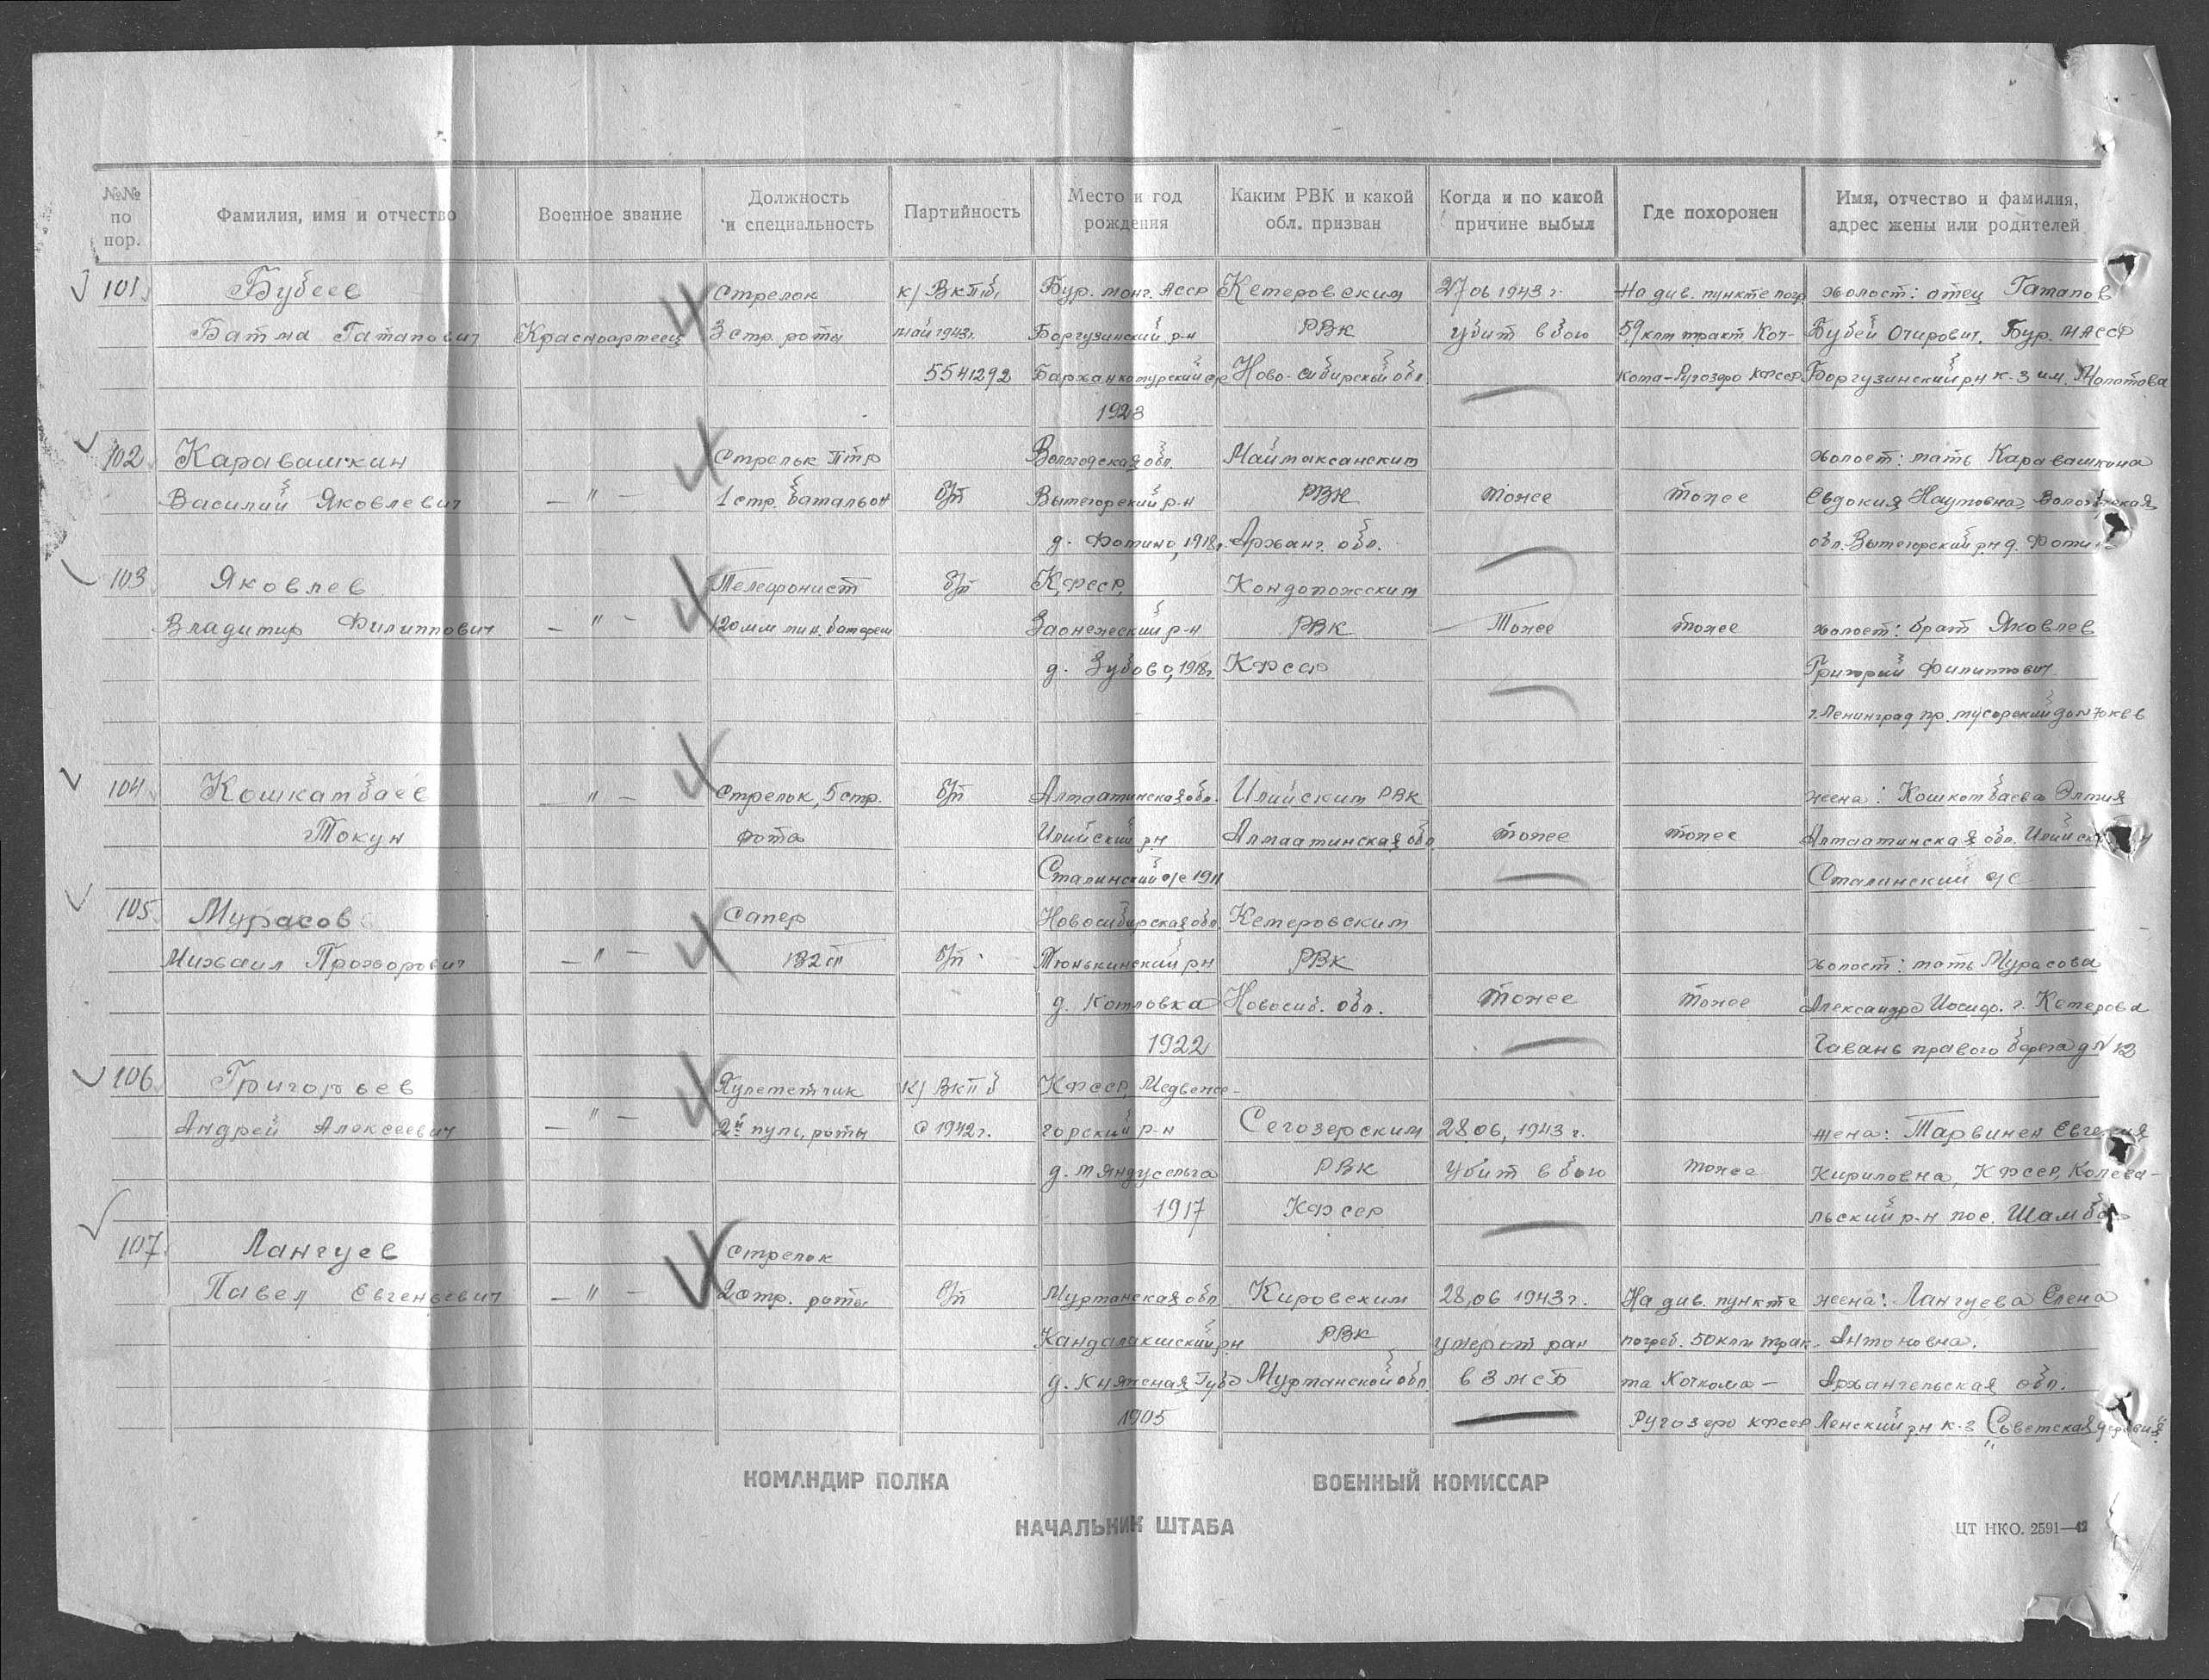 №№ по пор. Фамилия, имя и отчество Военное звание Должность и специальность Партийность Место и год рождения Каким РВК и какой обл. призван Когда и по какой причине выбыл Где похоронен Имя, отчество и фамилия, адрес жены или родителей
101 Бубеев Стрелок к/ВКПб, Бур. монг. АССР Кемеровским 27 06 1943 г. На див. пункте погр холост: отец Гатапов
Батма Гатапович Красноармеец 3 стр. роты май 1943г. Боргузинский р-н РВК убит в бою 59 клм тракт Коч- Бубей Очирович, Бур. МАССР
5541292 с/с Ново-сибирской обл. кома-Ругозеро КФССР Боргузинский рн к-з им. Молотова
1923
102 Каравашкин Стрельк ПТР Вологодская обл. Маймаксанским холост: мать Каравашкина
Василий Яковлевич — " — 1 стр. батальон б/п Вытегорский р-н РВК тоже тоже Евдокия Наумовна Вологодская
д. Фотино, 1918г. Арханг. обл. обл. Вытегорский рн д. Фотин
103 Яковлев Телефонист б/п КФССР, Кондопожским
Владимир Филиппович — " — 120 мм мин. батареи Заонежский р-н РВК Тоже тоже холост: брат Яковлев
д. Зубово, 1918г. КФССР Григорий Филиппович
г. Ленинград пр.
104 Кошкамбаев — " — Стрелок, 5 стр. б/п Алмаатинская обл. Илийским РВК жена: Кошкомбаева
Токун рота Илийский р-н Алмаатинская обл тоже тоже Алмаатинская обл. Илийский
Сталинский с/с 1911 Сталинский с/с
105 Мурасов Сапер Новосибирская обл. Кемеровским
Михаил Прохорович — " — б/п Тюнькинский рн РВК холост: мать Мурасова
д. Котловка Новосиб. обл. тоже тоже Александра Иосиф. г. Кемерова
1922 Гавань правого берега д N 12
106 Григорьев Пулеметчик к/ВКПб КФССР, Медвеже-
Андрей Алексеевич — " — 2й пуль, роты с 1942г. горский р-н Сегозерским 28 06, 1943 г. жена: Тарвинен Евгения
д. Мяндусельга РВК убит в бою тоже Кириловна, КФССР, Колева-
1917 КФССР льский р-н пос. Шамба
107 Лангуев Стрелок
Павел Евгеньевич — " — 2 стр. роты б/п Мурманская обл Кировским 28,06 1943г. На див. пункте жена: Лангуева Елена
Кандалакшский рн РВК умер от ран погреб. 50 клм трак- Антоновна.
д. Княжная Губа Мурманской обл. в 3 МСБ та Кочкома — Архангельская обл.
1905 Ругозеро КФССР Ленский рн к-з „Советская деревня
КОМАНДИР ПОЛКА ВОЕННЫЙ КОМИССАР
НАЧАЛЬНИК ШТАБА
ЦТ НКО. 2591—42